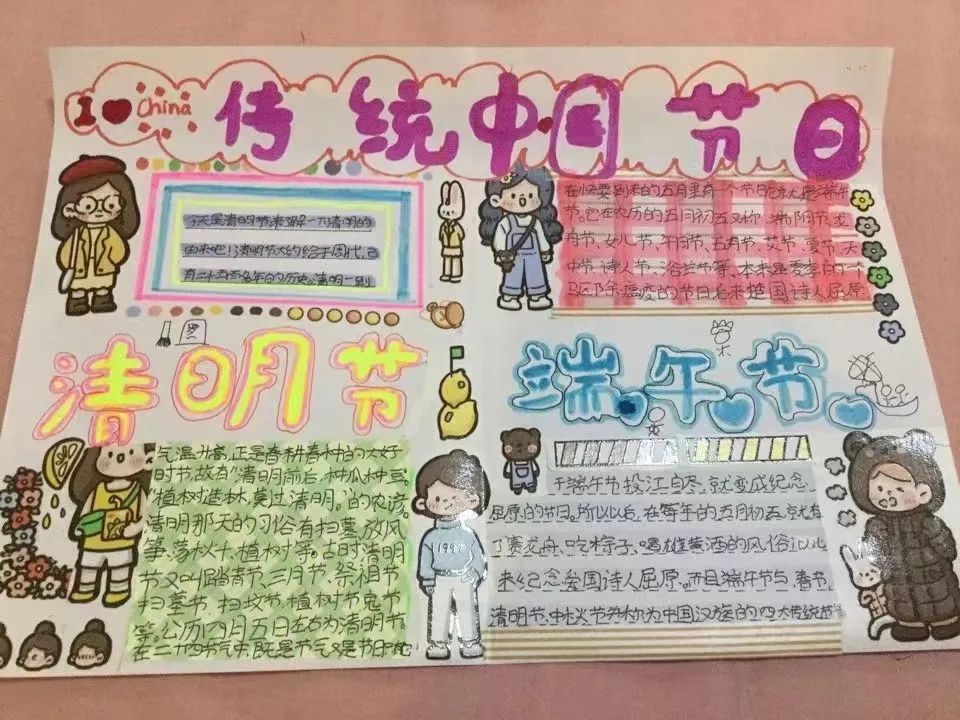 I ❤ China
传统中国节日
今天是清明节来了解一下清明的
由来吧!清明节大约始于周代,已
有二十五百多年的历史。清明一到
在快要到来的五月里有一个节日就是端午
节。它在农历的五月初五又称端阳节、龙
母节、女儿节、午日节、五月节、艾节、夏节、天
中节、诗人节、浴兰节等、本来是夏季的一个
驱除瘟疫的节日后来楚国诗人屈原
清明节
端午节
气温升高,正是春耕春种的大好
时节,故有"清明前后,种瓜种豆,
"植树造林,莫过清明。"的农谚。
清明那天的习俗有扫墓、放风
筝、荡秋千、植树等。古时清明
节又叫踏青节、三月节、祭祖节、
扫墓节、扫坟节、植树节鬼节
等。公历四月五日左右为清明节。
在二十四节气中,既是节气又是节日
于端午节投江自尽,就变成纪念
屈原的节日。所以以后,在每年的五月初五,就有
了赛龙舟、吃粽子、喝雄黄酒的风俗以此
来纪念爱国诗人屈原。而且端午节与春节、
清明节、中秋节并称为中国汉族的四大传统
1997